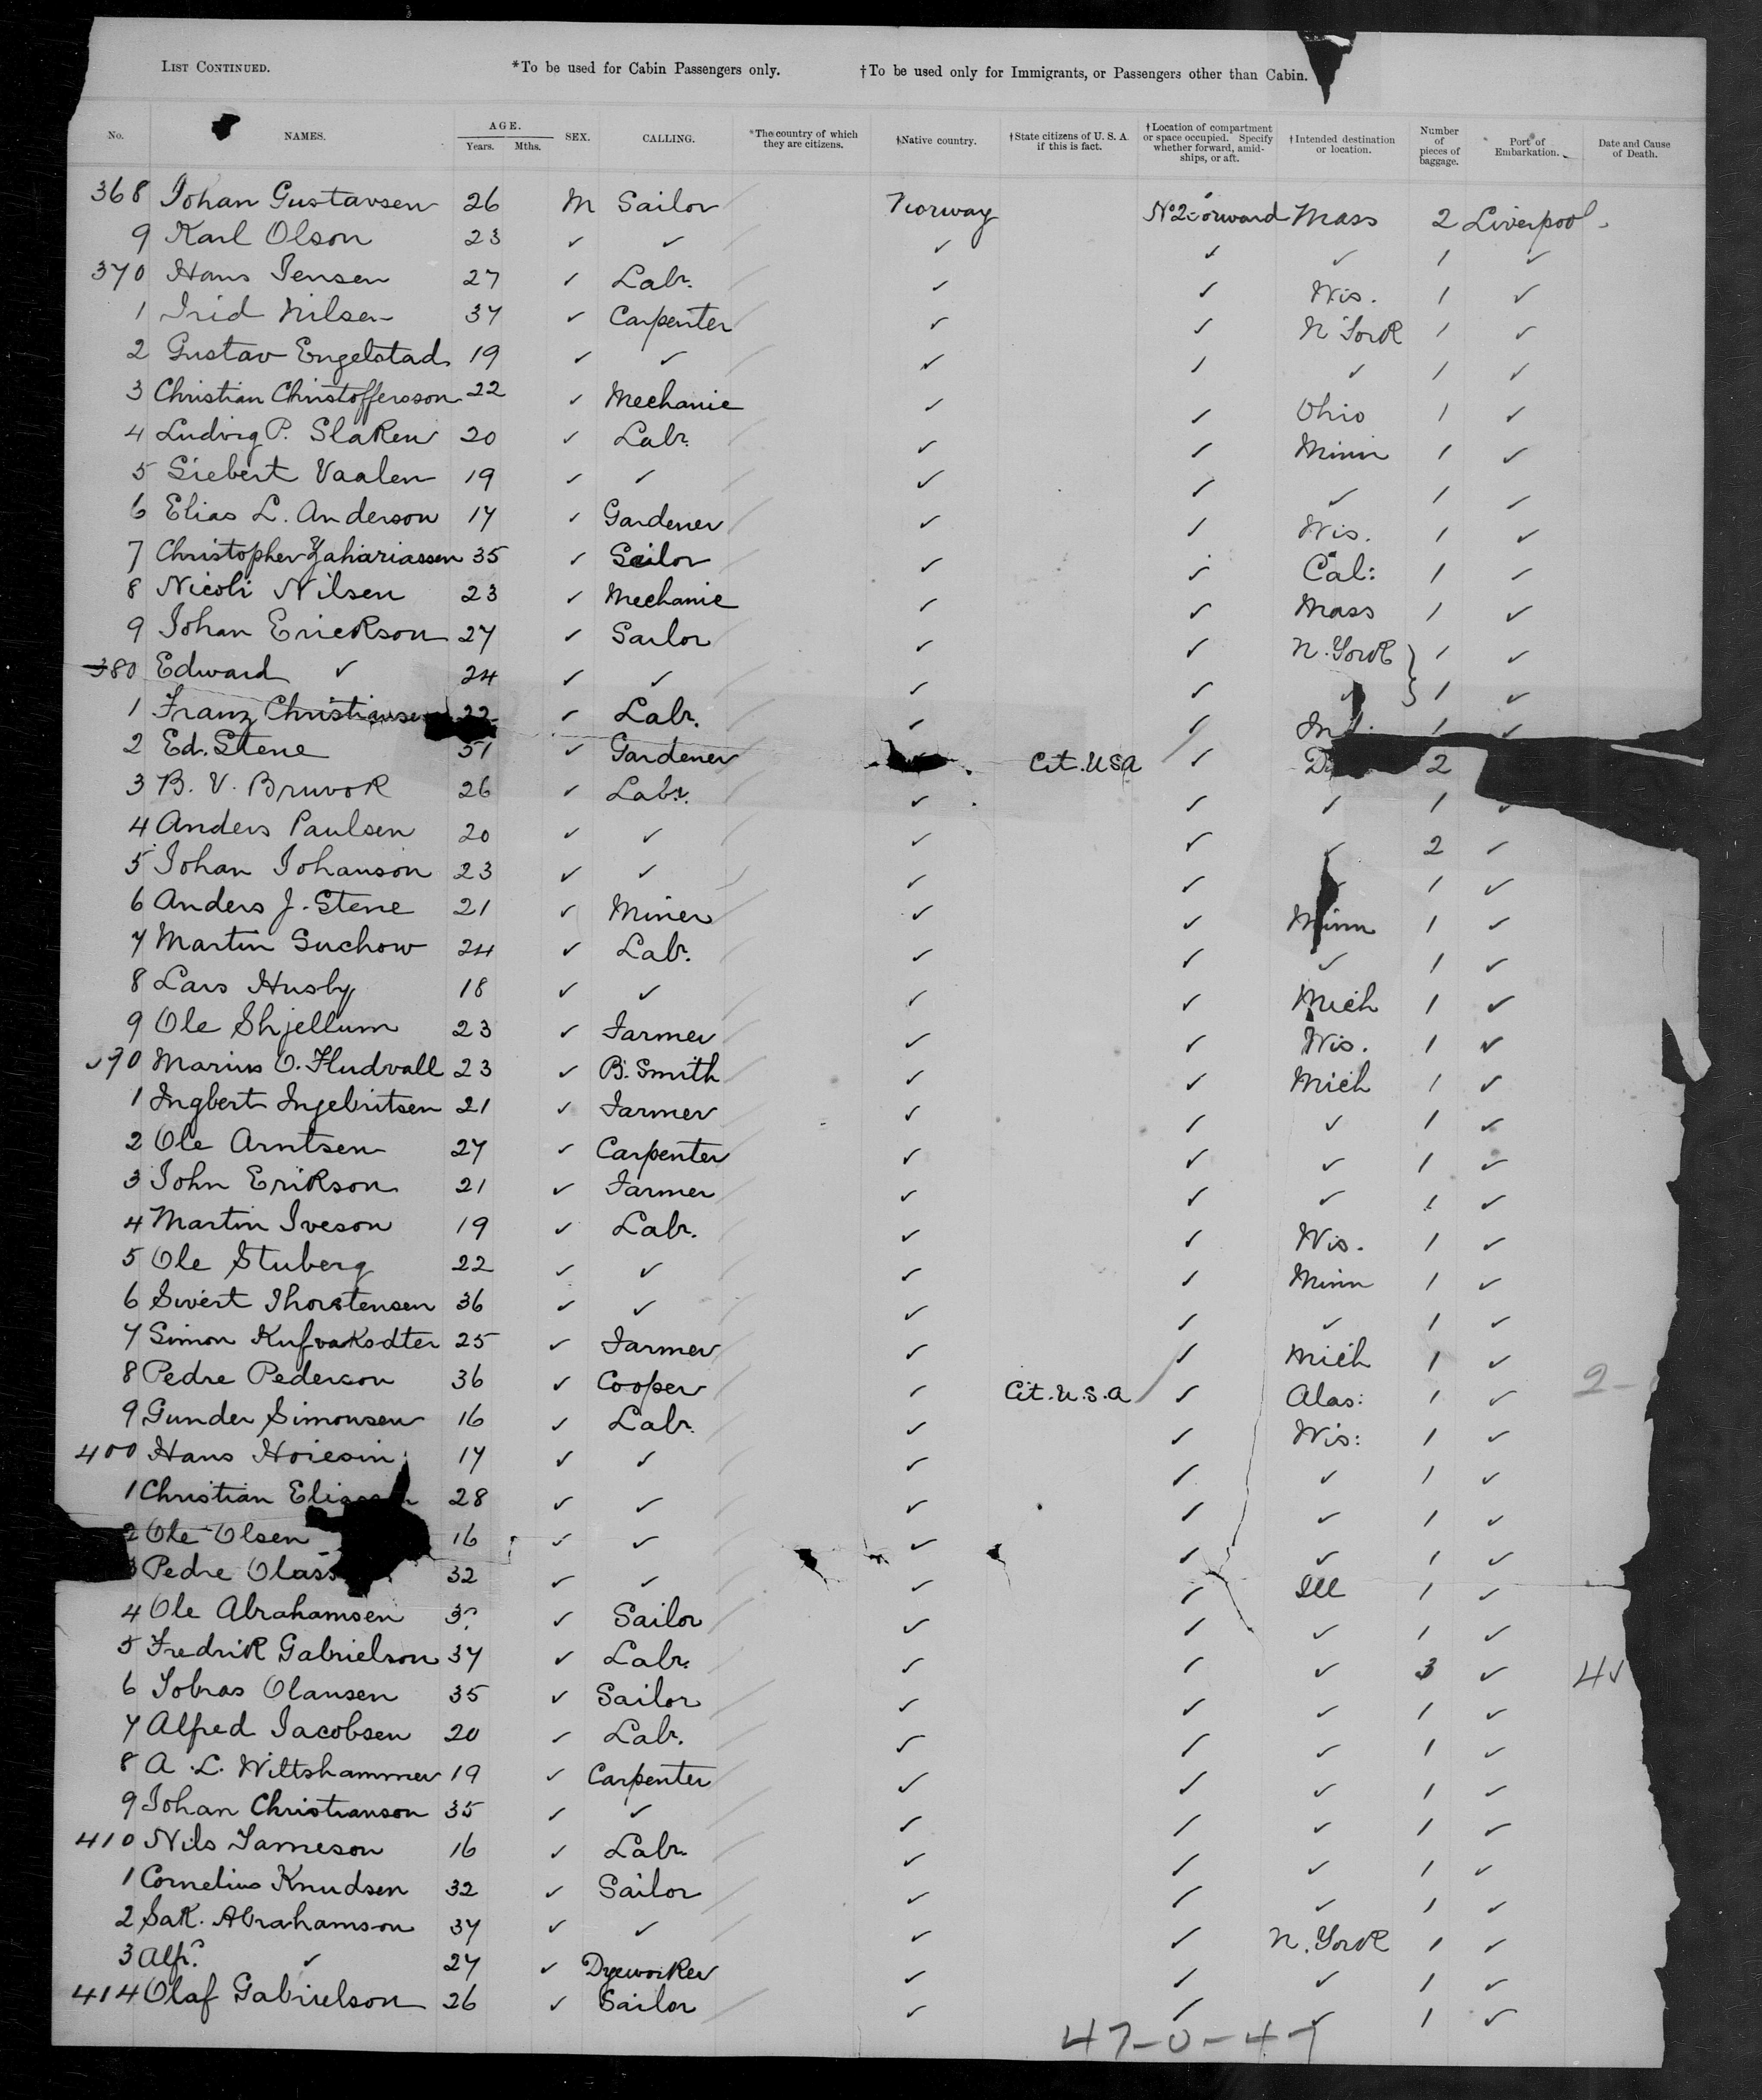 LIST CONTINUED. *To be used for Cabin Passengers only. †To be used only for Immigrants, or Passengers other than Cabin.
No. NAMES. AGE. Years. Mths. SEX. CALLING. *The country of which they are citizens. †Native country. †State citizens of U. S. A. if this is fact. †Location of compartment or space occupied. Specify whether forward, amidships, or aft. †Intended destination or location. Number of pieces of baggage. Port of Embarkation. Date and Cause of Death.
368 Johan Gustavsen 26 M Sailor Norway No 2 Forward Mass 2 Liverpool
9 Karl Olson 23 ✓ ✓ ✓ ✓ ✓ 1 ✓
370 Hans Jensen 27 ✓ Labr. ✓ ✓ Wis. 1 ✓
1 Nilsen 37 ✓ Carpenter ✓ ✓ N York 1 ✓
2 Gustav Engelstad 19 ✓ ✓ ✓ ✓ ✓ 1 ✓
3 Christian Christofferson 22 ✓ Mechanic ✓ ✓ Ohio 1 ✓
4 Ludvig P. Slaken 20 ✓ Labr. ✓ ✓ Minn 1 ✓
5 Siebert Vaalen 19 ✓ ✓ ✓ ✓ ✓ 1 ✓
6 Elias L. Anderson 17 ✓ Gardener ✓ ✓ Wis. 1 ✓
7 Christopher Zahariassen 35 ✓ Sailor ✓ ✓ Cal: 1 ✓
8 Nicoli Nilsen 23 ✓ Mechanic ✓ ✓ Mass 1 ✓
9 Johan Erickson 27 ✓ Sailor ✓ ✓ N. York 1 ✓
380 Edward ✓ 24 ✓ ✓ ✓ ✓ ✓ 1 ✓
1 Franz Christiansen 22 ✓ Labr. ✓ ✓ 1 ✓
2 Ed. Stene 51 ✓ Gardener ✓ Cit. USA ✓ 2
3 B. V. Bruvok 26 ✓ Labr. ✓ ✓ ✓ 1 ✓
4 Anders Paulsen 20 ✓ ✓ ✓ ✓ ✓ 2 ✓
5 Johan Johanson 23 ✓ ✓ ✓ ✓ ✓ 1 ✓
6 Anders J. Stene 21 ✓ Miner ✓ ✓ Minn 1 ✓
7 Martin Suchow 24 ✓ Labr. ✓ ✓ ✓ 1 ✓
8 Lars Husby 18 ✓ ✓ ✓ ✓ Mich 1 ✓
9 Ole Shjellum 23 ✓ Farmer ✓ ✓ Wis. 1 ✓
390 Marius O. Fludvall 23 ✓ B. Smith ✓ ✓ Mich 1 ✓
1 Ingbert Ingebritsen 21 ✓ Farmer ✓ ✓ ✓ 1 ✓
2 Ole Arntsen 27 ✓ Carpenter ✓ ✓ ✓ 1 ✓
3 John Erikson 21 ✓ Farmer ✓ ✓ ✓ 1 ✓
4 Martin Iveson 19 ✓ Labr. ✓ ✓ Wis. 1 ✓
5 Ole Stuberg 22 ✓ ✓ ✓ ✓ Minn 1 ✓
6 Sivert Thorstensen 36 ✓ ✓ ✓ ✓ ✓ 1 ✓
7 Simon 25 ✓ Farmer ✓ ✓ Mich 1 ✓
8 Pedre Pederson 36 ✓ Cooper ✓ Cit. U.S.A ✓ Alas: 1 ✓ 2-
9 Gunder Simonsen 16 ✓ Labr. ✓ ✓ Wis: 1 ✓
400 Hans Hoiesin 17 ✓ ✓ ✓ ✓ ✓ 1 ✓
1 Christian 28 ✓ ✓ ✓ ✓ ✓ 1 ✓
2 Ole Olsen 16 ✓ ✓ ✓ ✓ ✓ 1 ✓
3 Pedre 32 ✓ ✓ ✓ ✓ Ill 1 ✓
4 Ole Abrahamsen ✓ Sailor ✓ ✓ ✓ 1 ✓
5 Fredrik Gabrielson 37 ✓ Labr. ✓ ✓ ✓ 3 ✓ 4✓
6 Tobias Olausen 35 ✓ Sailor ✓ ✓ ✓ 1 ✓
7 Alfred Jacobsen 20 ✓ Labr. ✓ ✓ ✓ 1 ✓
8 A. L. Wiltshammer 19 ✓ Carpenter ✓ ✓ ✓ 1 ✓
9 Johan Christianson 35 ✓ ✓ ✓ ✓ ✓ 1 ✓
410 Nils Jameson 16 ✓ Labr. ✓ ✓ ✓ 1 ✓
1 Cornelius Knudsen 32 ✓ Sailor ✓ ✓ ✓ 1 ✓
2 Sak. Abrahamson 37 ✓ ✓ ✓ ✓ N. York 1 ✓
3 Alfr. ✓ 27 ✓ Dyeworker ✓ ✓ ✓ 1 ✓
414 Olaf Gabrielson 26 ✓ Sailor ✓ ✓ ✓ 1 ✓
47-0-47